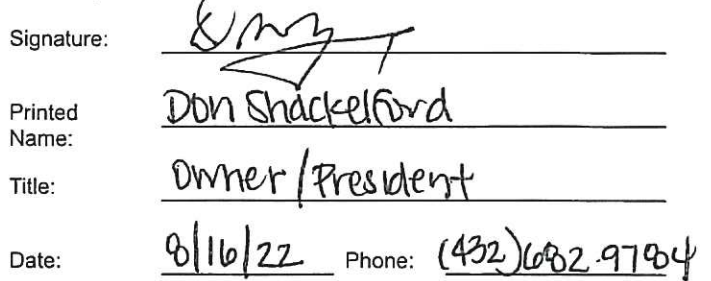 Signature:
Printed Don Shackelford
Name:
Title: Owner/President
Date: 8/16/22 Phone: (432)682-9784